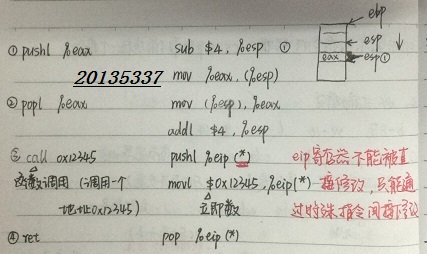 ebp
① pushl %eax sub $4, %esp ① esp
20135337 mov %eax, (%esp) eax esp①
② popl %eax mov (%esp), %eax
addl $4, %esp
③ call 0x12345 pushl %eip (*) eip寄存器不能被直
函数调用 (调用一个 movl $0x12345, %eip(*) 接修改, 只能通
地址0x12345) 立即数 过特殊指令间接修改
④ ret pop %eip(*)